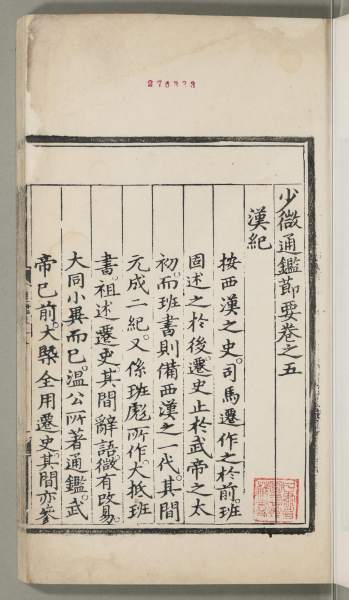 276323
少微通鑑節要卷之五
漢紀
按西漢之史。司馬遷作之於前。班
固述之於後。遷史止於武帝之太
初。而班書則備西漢之一代。其間
元成二紀。又係班彪所作。大抵班
書。祖述遷史。其間辭語。微有改易。
大同小異而已。溫公所著通鑑。武
帝已前。大槩全用遷史。其間亦參